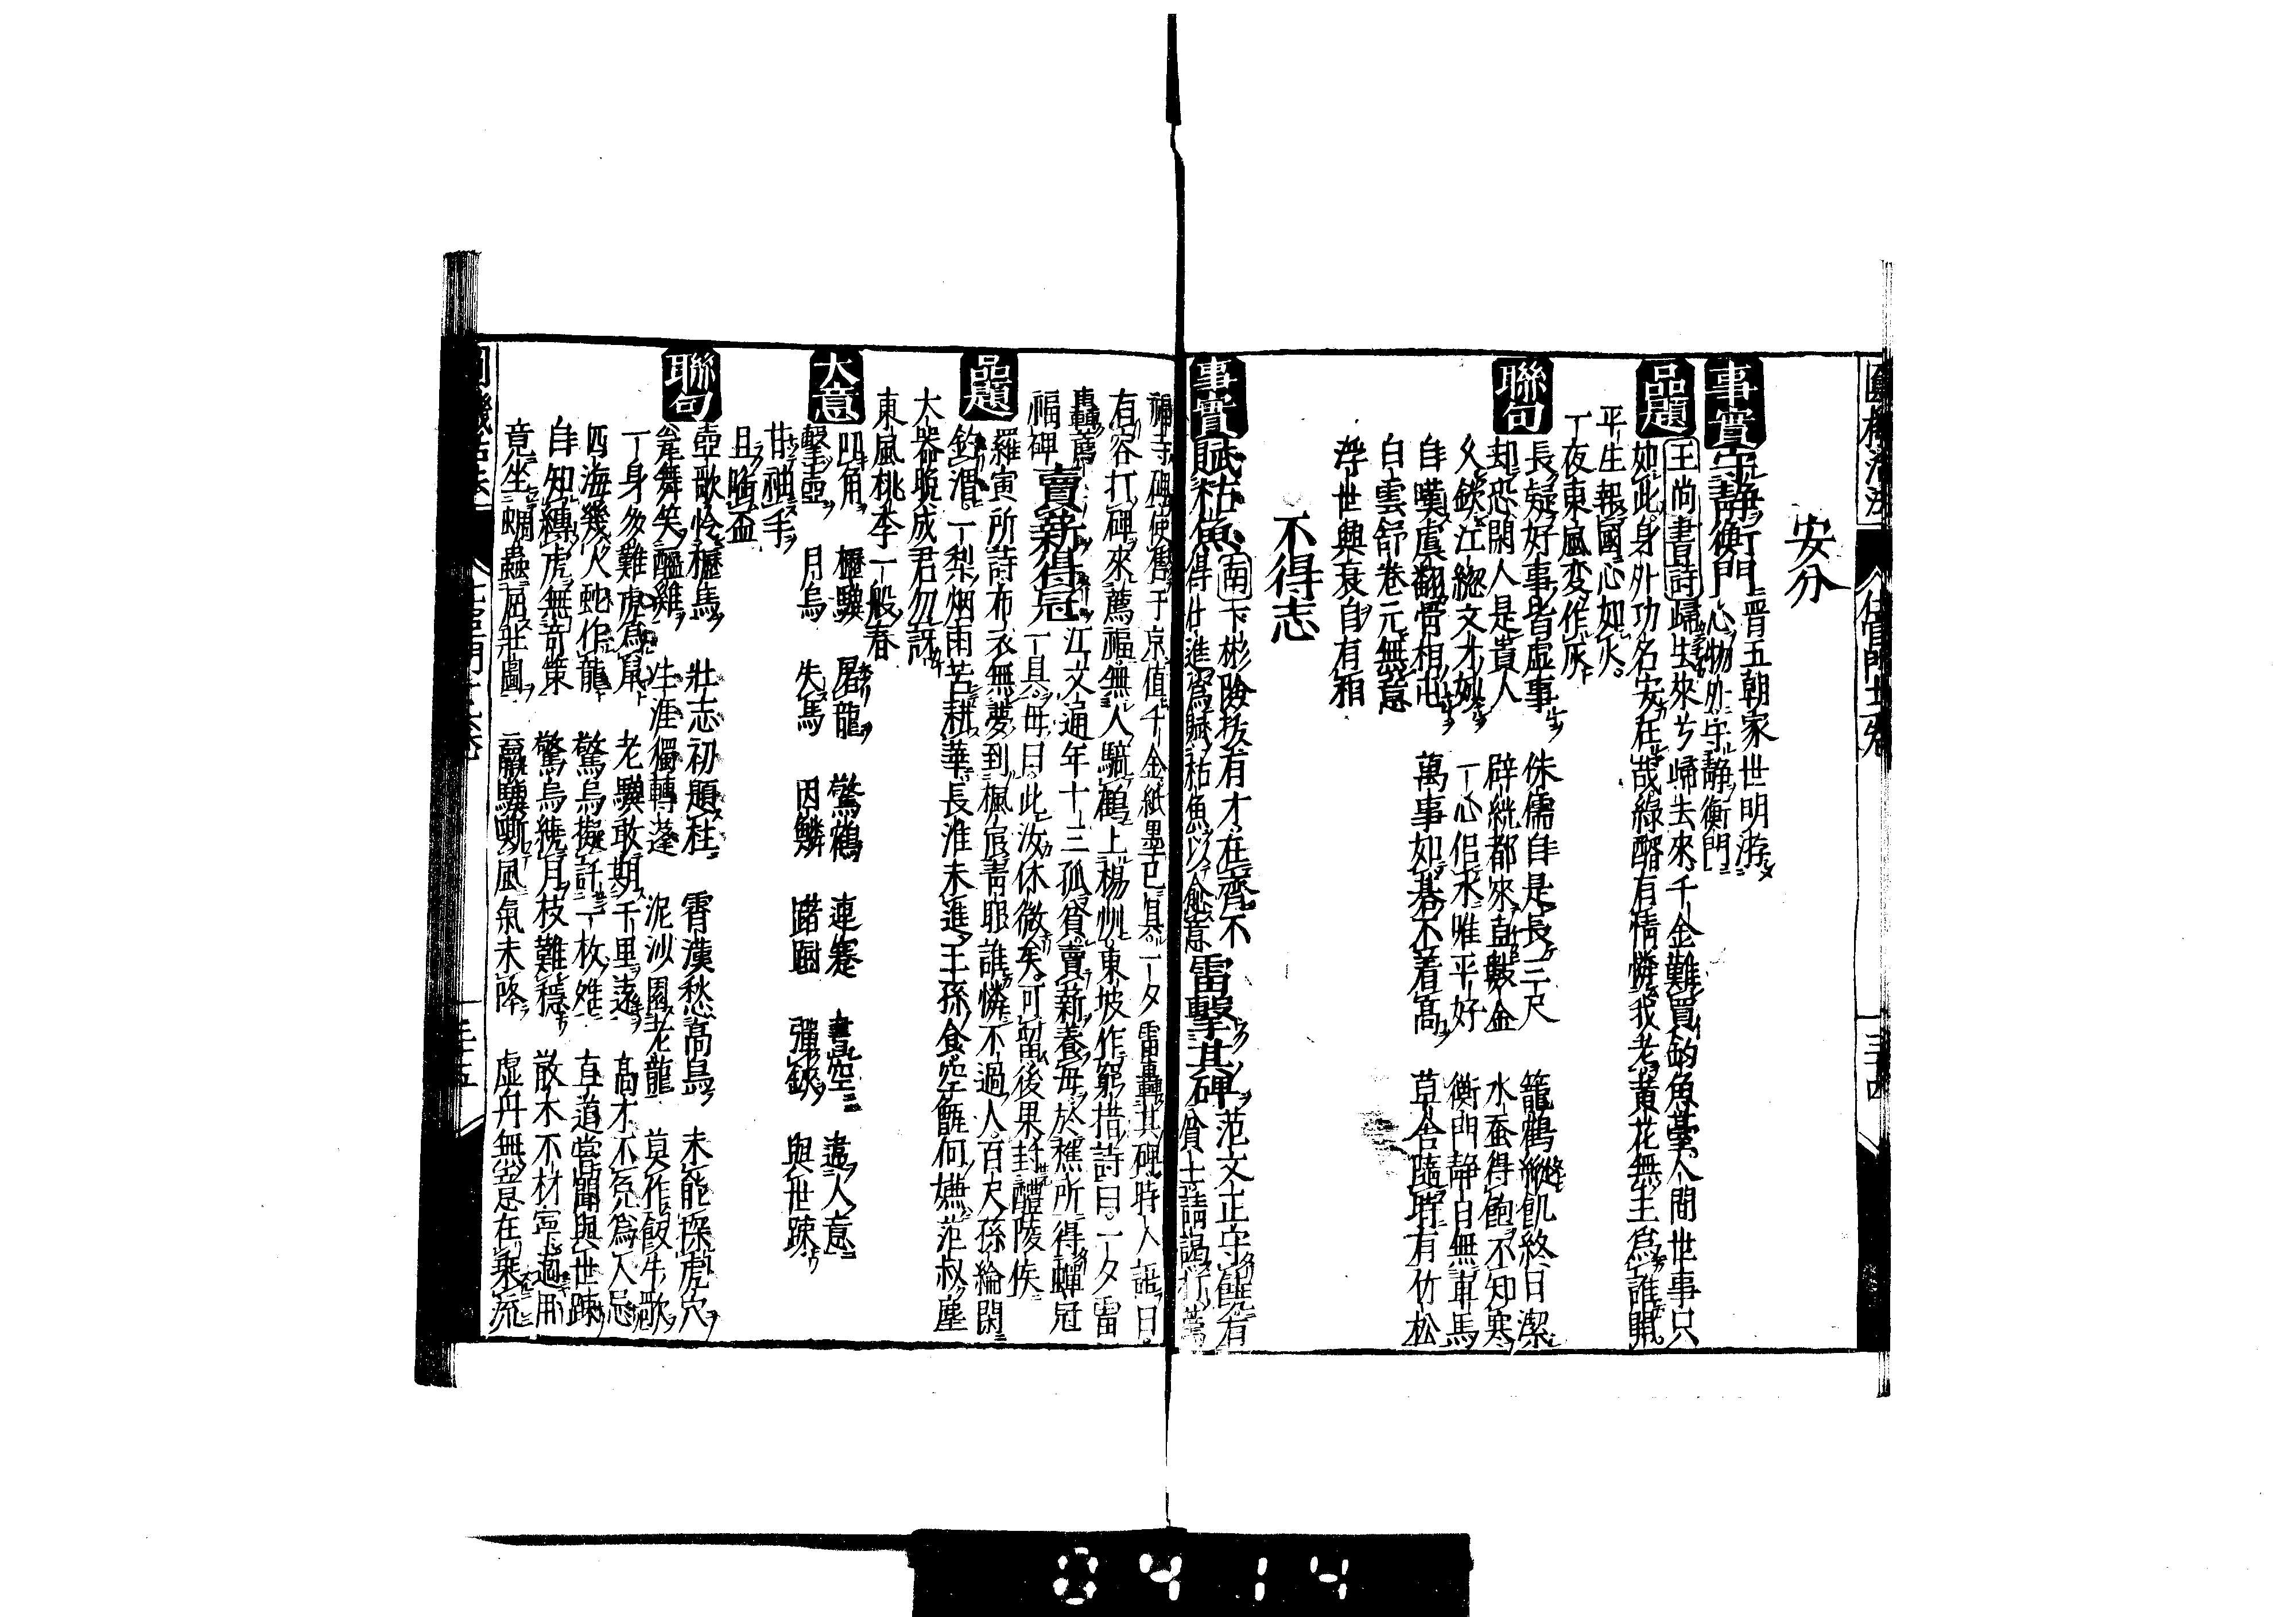 安分
事實 守静衡門 晋五朝家世明游
心物外守静衡門
品題 王尚書詩 歸去來兮歸去來千金難買釣魚臺人間世事只
如此身外功名安在哉綠醑有情憐我老黄花無主爲誰開
平生報國心如火
一夜東風变作灰
聯句 長疑好事皆虚事 侏儒自是長三尺 籠鶴縱飢終日潔
却恐閑人是貴人 辟絖都來直數金 水蚕得飽不知寒
久欽江總文才妙 一心侶水唯平好 衡門静自無車馬
自嘆虞翻骨相屯 萬事如碁不着高 草舍隨時有竹松
白雲舒卷元無意
浮世興衰自有箱
不得志
事實 賦枯魚 南卞彬險拔有才在齊不
得仕進爲賦枯魚以喩意 雷擊其碑 范文正守饒有
貧士請謁打薦
福寺碑使售于京值千金紙墨已具一夕雷轟其碑時人語曰
有容打碑來薦福無人騎鶴上楊州東坡作窮措詩曰一夕雷
轟薦
福碑 賣薪得冠 江文通年十三孤貧賣薪養毎於樵所得蟬冠
一具毋曰此汝休徴矣可留後果封醴陵侯
品題 羅寅所詩布衣無夢到楓宸青眼誰憐不過人百尺孫綸閑
釣渭一梨烟雨苦耕莘長淮未進王孫食空甑何嫵范叔塵
大器晩成君勿訝
東風桃李一般春
大意 叩角 櫪驥 屠龍 驚鶴 連蹇 書空 違人意
擊壺 月烏 失馬 因鱗 躇蹰 彈鋏 與世踈
甘袖手
且啣盃
聯句 壺歌怜櫪馬 壯志初題柱 霄漢愁高鳥 未能探虎穴
瓮舞笑醯雞 生涯獨轉蓬 泥沙困老龍 莫作飯牛歌
一身多難虎爲鼠 老驥敢期千里遠 高才不免爲人忌
四海幾人蛇作龍 驚烏擬託一枚难 直道當聞與世踈
自知縛虎無奇策 驚烏繞月枝難穏 散木不材寕適用
竟坐蜩蟲屈壯圖 羸驥嘶風氣未降 虚舟無意在乘流
8414